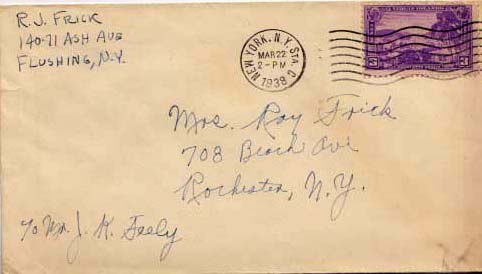 R.J. FRICK
140-71 ASH AVE
FLUSHING, N.Y.
NEW YORK, N.Y. STA. C
MAR 22
2-PM
1938
3¢ 3¢
Mrs. Ray Frick
708 Beach Ave
Rochester, N.Y.
c/o Mr. J. K. Feely